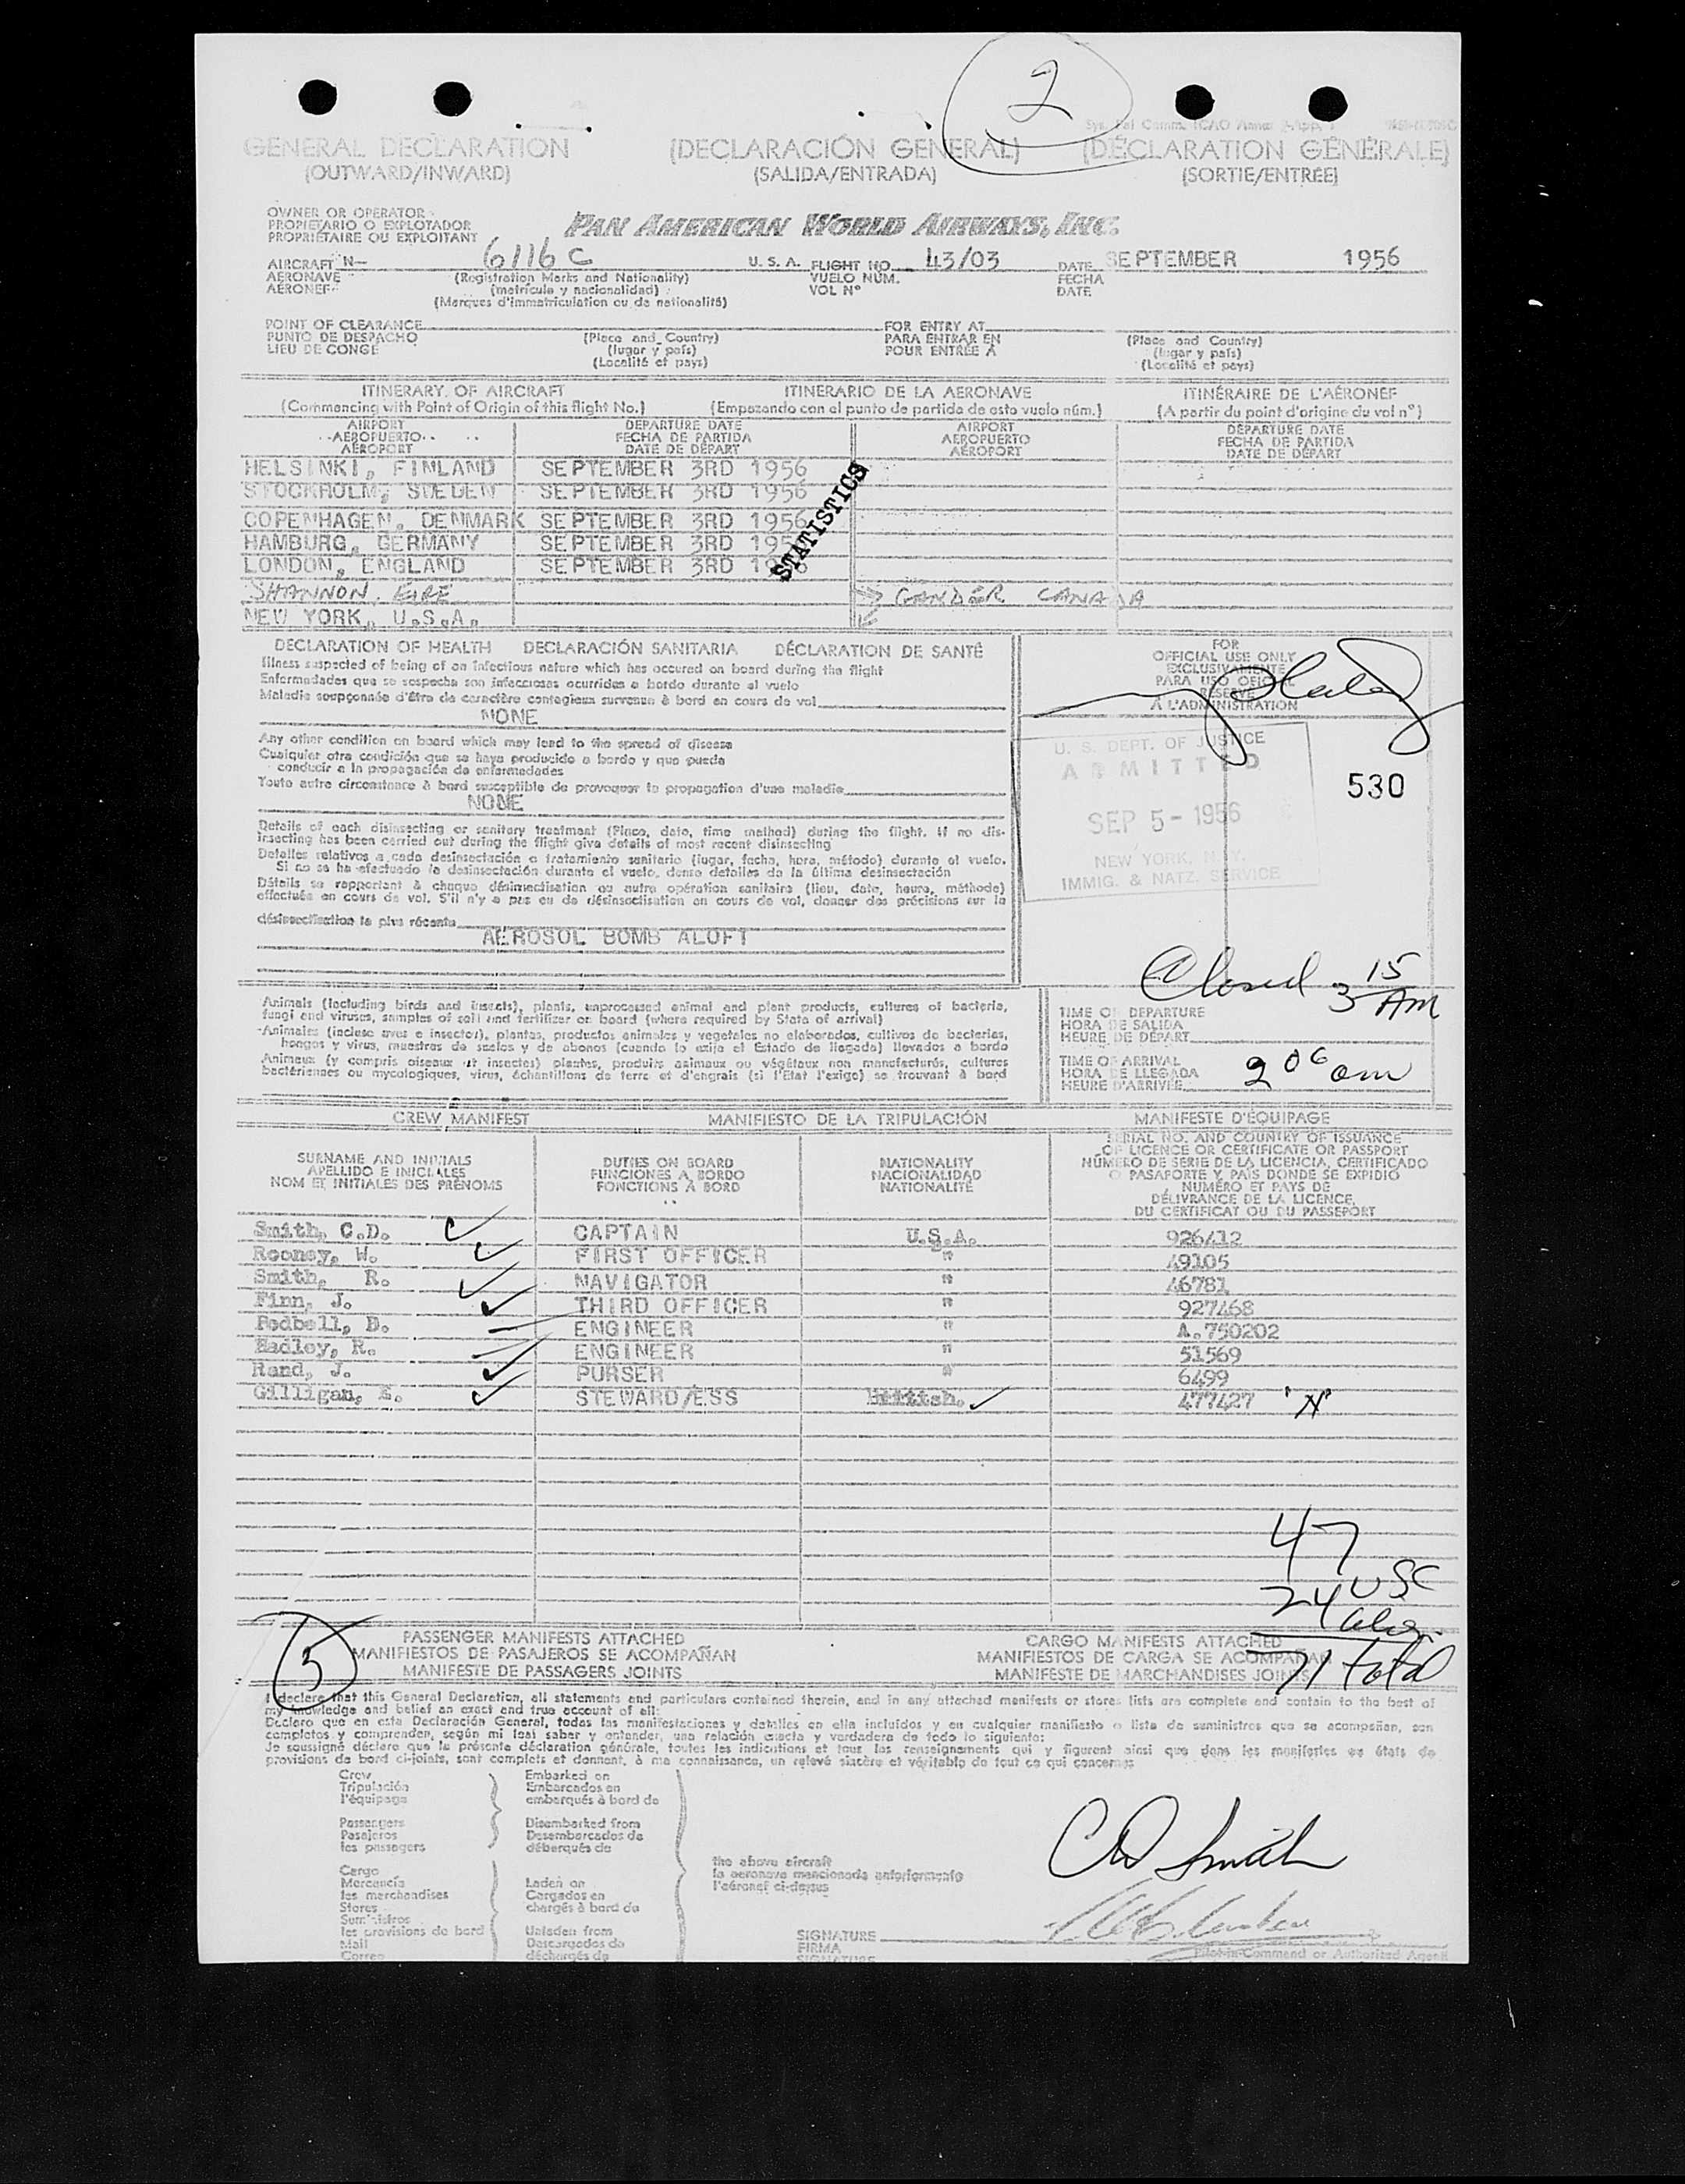 2
GENERAL DECLARATION (DECLARACIÓN GENERAL) (DÉCLARATION GÉNÉRALE)
(OUTWARD/INWARD) (SALIDA/ENTRADA) (SORTIE/ENTRÉE)
OWNER OR OPERATOR
PROPIETARIO O EXPLOTADOR
PROPRIÉTAIRE OU EXPLOITANT
PAN AMERICAN WORLD AIRWAYS, INC.
AIRCRAFT N— 6116 C U. S. A. FLIGHT NO. 43/03 DATE SEPTEMBER 1956
AERONAVE (Registration Marks and Nationality) VUELO NÚM. FECHA
AÉRONEF (matrícula y nacionalidad) VOL N° DATE
(Marques d'immatriculation ou de nationalité)
POINT OF CLEARANCE FOR ENTRY AT
PUNTO DE DESPACHO (Place and Country) PARA ENTRAR EN (Place and Country)
LIEU DE CONGÉ (lugar y país) POUR ENTRÉE À (lugar y país)
(Localité et pays) (Localité et pays)
ITINERARY OF AIRCRAFT ITINERARIO DE LA AERONAVE ITINÉRAIRE DE L'AÉRONEF
(Commencing with Point of Origin of this flight No.) (Empezando con el punto de partida de este vuelo núm.) (A partir du point d'origine du vol n°)
AIRPORT DEPARTURE DATE AIRPORT DEPARTURE DATE
AEROPUERTO FECHA DE PARTIDA AEROPUERTO FECHA DE PARTIDA
AÉROPORT DATE DE DÉPART AÉROPORT DATE DE DÉPART
HELSINKI, FINLAND SEPTEMBER 3RD 1956
STOCKHOLM, SWEDEN SEPTEMBER 3RD 1956
COPENHAGEN, DENMARK SEPTEMBER 3RD 1956
HAMBURG, GERMANY SEPTEMBER 3RD 1956
LONDON, ENGLAND SEPTEMBER 3RD 1956
STATISTICS
SHANNON. EIRE GANDER CANADA
NEW YORK, U.S.A.
DECLARATION OF HEALTH DECLARACIÓN SANITARIA DÉCLARATION DE SANTÉ
Illness suspected of being of an infectious nature which has occured on board during the flight
Enfermedades que se sospecha son infecciosas ocurridas a bordo durante el vuelo
Maladie soupçonnée d'être de caractère contagieux survenue à bord en cours de vol
NONE
Any other condition on board which may lead to the spread of disease
Cualquier otra condición que se haya producido a bordo y que pueda
conducir a la propagación de enfermedades
Toute autre circonstance à bord susceptible de provoquer la propagation d'une maladie
NONE
Details of each disinsecting or sanitary treatment (Place, date, time method) during the flight. If no dis-
insecting has been carried out during the flight give details of most recent disinsecting
Detalles relativos a cada desinsectación o tratamiento sanitario (lugar, fecha, hora, método) durante el vuelo.
Si no se ha efectuado la desinsectación durante el vuelo, dense detalles de la última desinsectación
Détails se rapportant à chaque désinsectisation ou autre opération sanitaire (lieu, date, heure, méthode)
effectuée en cours de vol. S'il n'y a pas eu de désinsectisation en cours de vol, donner des précisions sur la
désinsectisation la plus récente
AEROSOL BOMB ALOFT
FOR
OFFICIAL USE ONLY
EXCLUSIVAMENTE
PARA USO OFICIAL
RESERVÉ
À L'ADMINISTRATION
U. S. DEPT. OF JUSTICE
ADMITTED
530
SEP 5 - 1956
NEW YORK, N.Y.
IMMIG. & NATZ. SERVICE
Closed 3 15 AM
Animals (including birds and insects), plants, unprocessed animal and plant products, cultures of bacteria,
fungi and viruses, samples of soil and fertilizer on board (where required by State of arrival)
Animales (incluso aves e insectos), plantas, productos animales y vegetales no elaborados, cultivos de bacterias,
hongos y virus, muestras de suelos y de abonos (cuando lo exija el Estado de llegada) llevados a bordo
Animaux (y compris oiseaux et insectes) plantes, produits animaux ou végétaux non manufacturés, cultures
bactériennes ou mycologiques, virus, échantillons de terre et d'engrais (si l'Etat l'exige) se trouvant à bord
TIME OF DEPARTURE
HORA DE SALIDA
HEURE DE DÉPART
TIME OF ARRIVAL
HORA DE LLEGADA 2 06 am
HEURE D'ARRIVÉE
CREW MANIFEST MANIFIESTO DE LA TRIPULACIÓN MANIFESTE D'ÉQUIPAGE
SURNAME AND INITIALS
APELLIDO E INICIALES
NOM ET INITIALES DES PRÉNOMS
DUTIES ON BOARD
FUNCIONES A BORDO
FONCTIONS À BORD
NATIONALITY
NACIONALIDAD
NATIONALITÉ
SERIAL NO. AND COUNTRY OF ISSUANCE
OF LICENCE OR CERTIFICATE OR PASSPORT
NÚMERO DE SERIE DE LA LICENCIA, CERTIFICADO
O PASAPORTE Y PAÍS DONDE SE EXPIDIO
NUMÉRO ET PAYS DE
DÉLIVRANCE DE LA LICENCE,
DU CERTIFICAT OU DU PASSEPORT
Smith, C.D. CAPTAIN U.S.A. 926412
Rooney, W. FIRST OFFICER " 49105
Smith, R. NAVIGATOR " 46781
Finn, J. THIRD OFFICER " 927468
Bodbell, D. ENGINEER " A.750202
Hadley, R. ENGINEER " 51569
Rand, J. PURSER " 6499
Gilligan, E. STEWARD/ESS British. 477427 "N"
47 USC
24 alien
71 total
5
PASSENGER MANIFESTS ATTACHED CARGO MANIFESTS ATTACHED
MANIFIESTOS DE PASAJEROS SE ACOMPAÑAN MANIFIESTOS DE CARGA SE ACOMPAÑAN
MANIFESTE DE PASSAGERS JOINTS MANIFESTE DE MARCHANDISES JOINTS
I declare that this General Declaration, all statements and particulars contained therein, and in any attached manifests or stores lists are complete and contain to the best of
my knowledge and belief an exact and true account of all:
Declaro que en esta Declaración General, todas las manifestaciones y detalles en ella incluídos y en cualquier manifiesto o lista de suministros que se acompañan, son
completos y comprenden, según mi leal saber y entender, una relación exacta y verdadera de todo lo siguiente:
Je soussigné déclare que la présente déclaration générale, toutes les indications et tous les renseignements qui y figurent ainsi que dans les manifestes ou états de
provisions de bord ci-joints, sont complets et donnent, à ma connaissance, un relevé sincère et véritable de tout ce qui concerne:
Crew Embarked on
Tripulación Embarcados en
l'équipage embarqués à bord de
Passengers Disembarked from
Pasajeros Desembarcados de
les passagers débarqués de
the above aircraft
la aeronave mencionada anteriormente
l'aéronef ci-dessus
Cargo
Mercancía Laden on
les merchandises Cargados en
Stores chargés à bord de
Suministros
les provisions de bord Unladen from
Mail Descargados de
Correo déchargés de
CD Smith
SIGNATURE
FIRMA
SIGNATURE
Pilot-in-Command or Authorized Agent